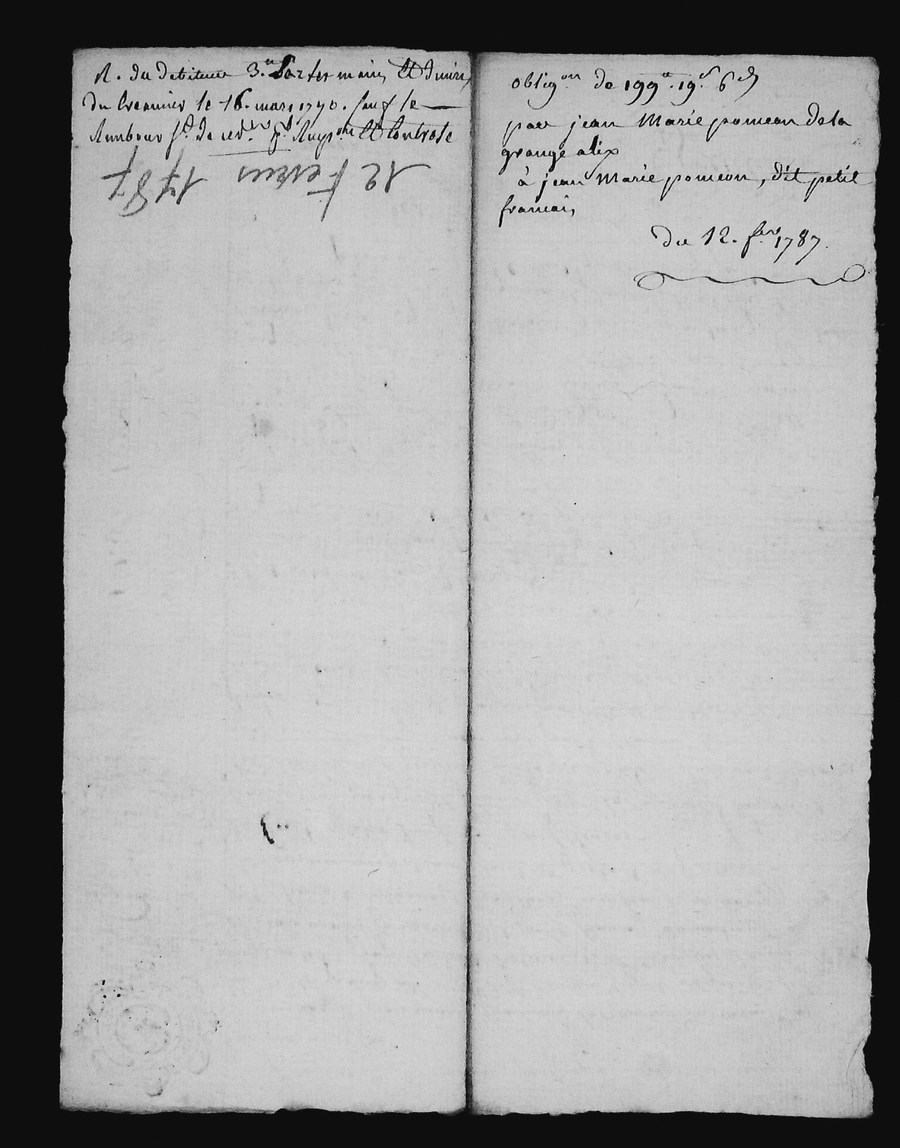 R. du debiteur 3.# Par les mains
du Creancier le 16. mars 1790. sauf le
de & Controle
12 Fevrier 1787
obligon de 199# 19s 6d
par jean Marie pomeon de la
grange alix
à jean Marie pomeon, dit petit
francais
du 12. fer 1787.